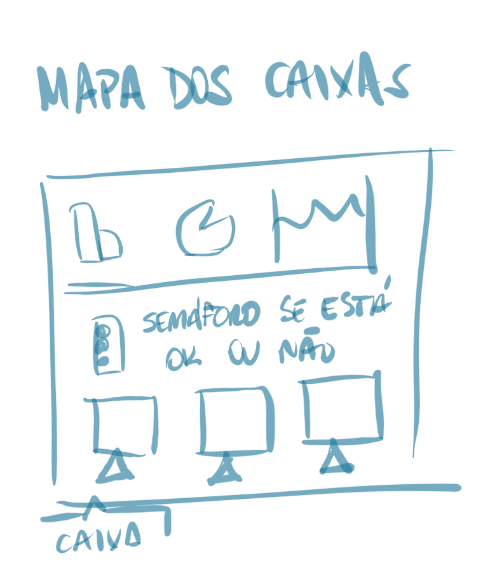 MAPA DOS CAIXAS
SEMÁFORO SE ESTÁ
OK OU NÃO
CAIXA